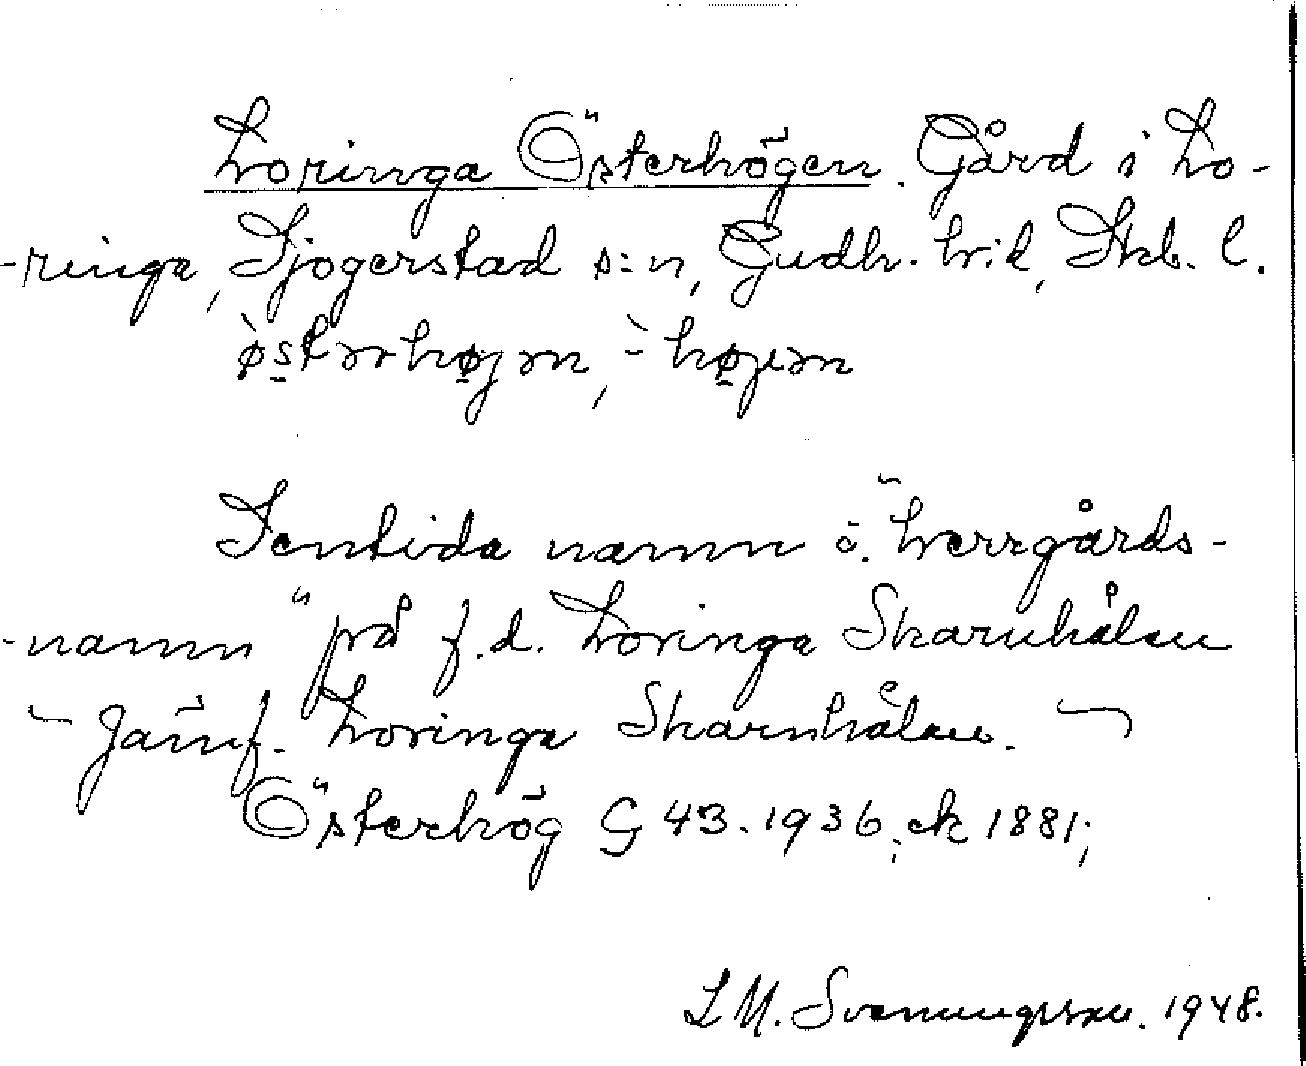 Loringa Österhögen. Gård i Lo-
-ringa, Sjogerstad s:n, Gudh. hd, Skb. l.
òstərhøjən, -̀ højən
Sentida namn o. "herrgårds-
-namn" på f.d. Loringa Skarnhålan
- Jämf. Loringa Skarnhålan.
Österhög G 43. 1936; ek 1881;
L M. Svenungsson. 1948.